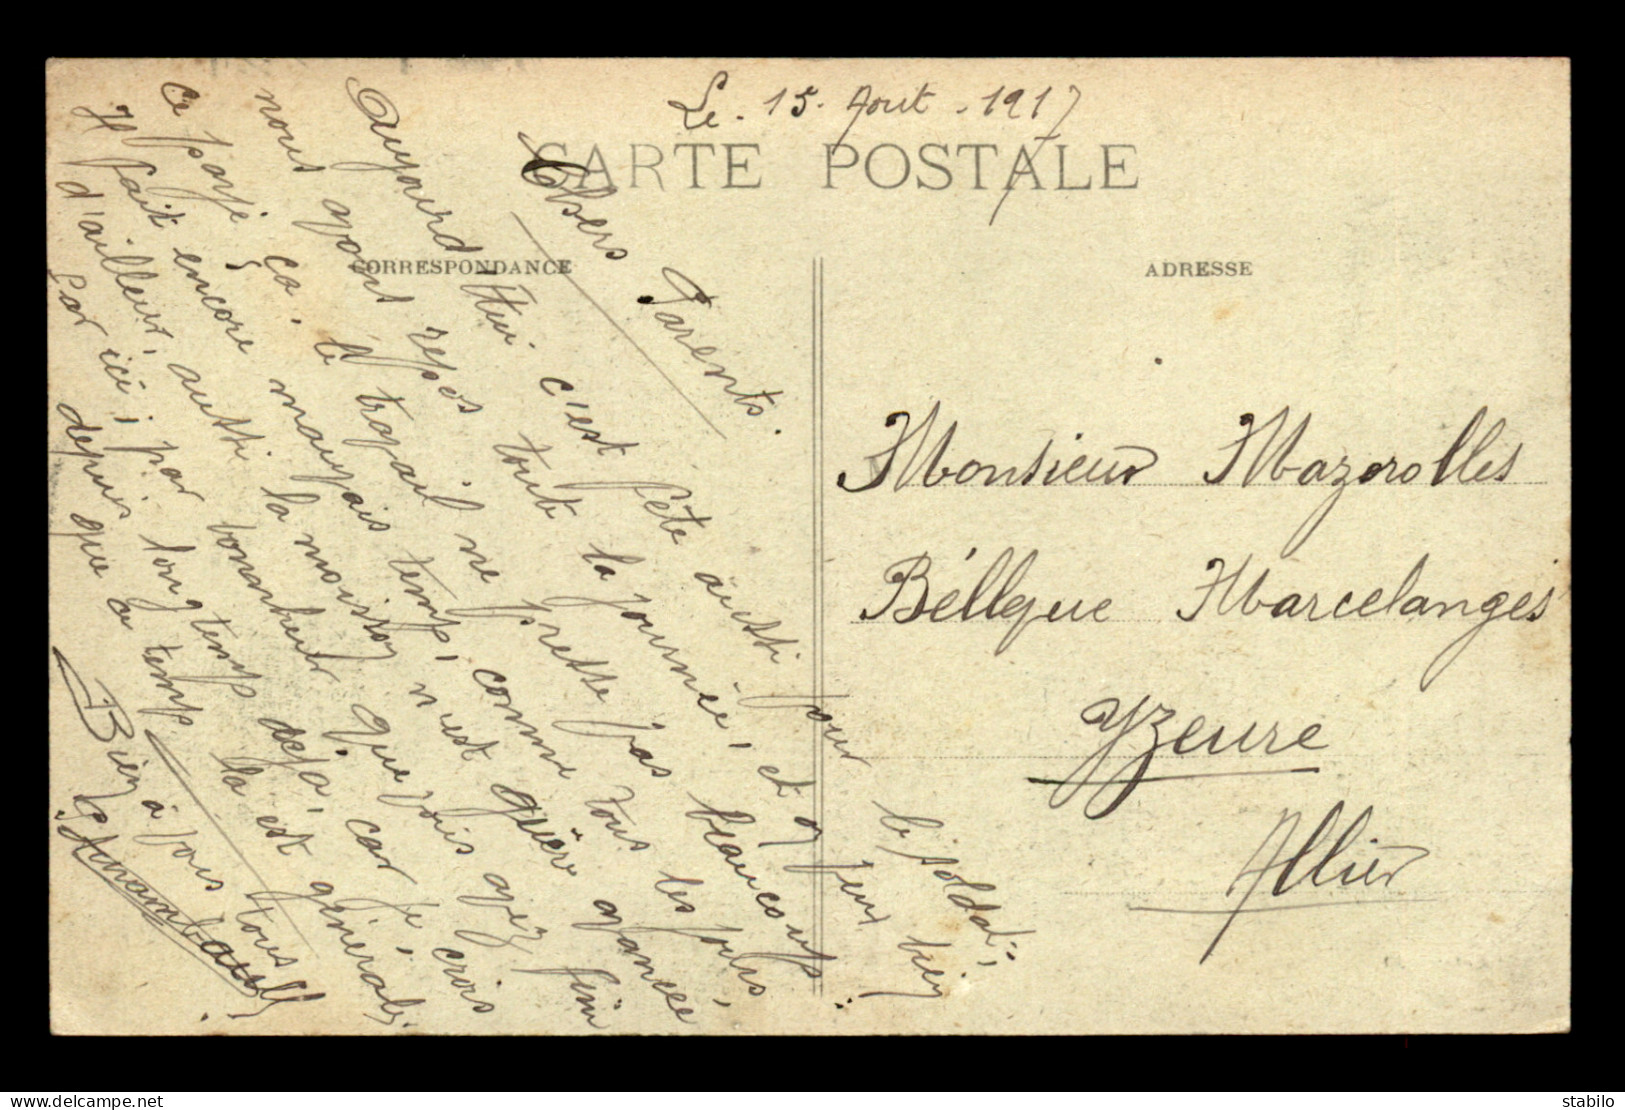 Le. 15. Aout. 1917
CARTE POSTALE
CORRESPONDANCE
ADRESSE
Chers Parents.
Aujourd'Hui c'est fête aussi pour le soldat,
nous avons repos toute la journée, et on peut bien
ce payé ça, le travail ne presse pas beaucoup.
Il fait encore mauvais temps, comme tous les jours,
d'ailleur, aussi la moisson n'est guère avancée
par ici, par bonheur que vous avez fini
depuis longtemps deja, car je crois
que ce temps la est général.
Bien à vous tous
Monsieur Mazerolles
Béllque Marcelanges
Yzeure
Allier
www.delcampe.net
stabilo